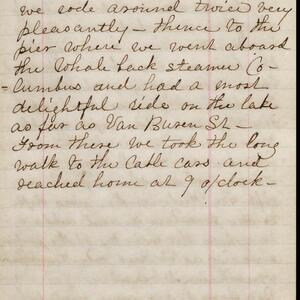 we rode around twice very
pleasantly - thence to the
pier where we went aboard
the Whale back steamer Co-
=lumbus and had a most
delightful ride on the lake
as far as Van Buren St -
From there we took the long
walk to the Cable cars and
reached home at 9 o/clock -